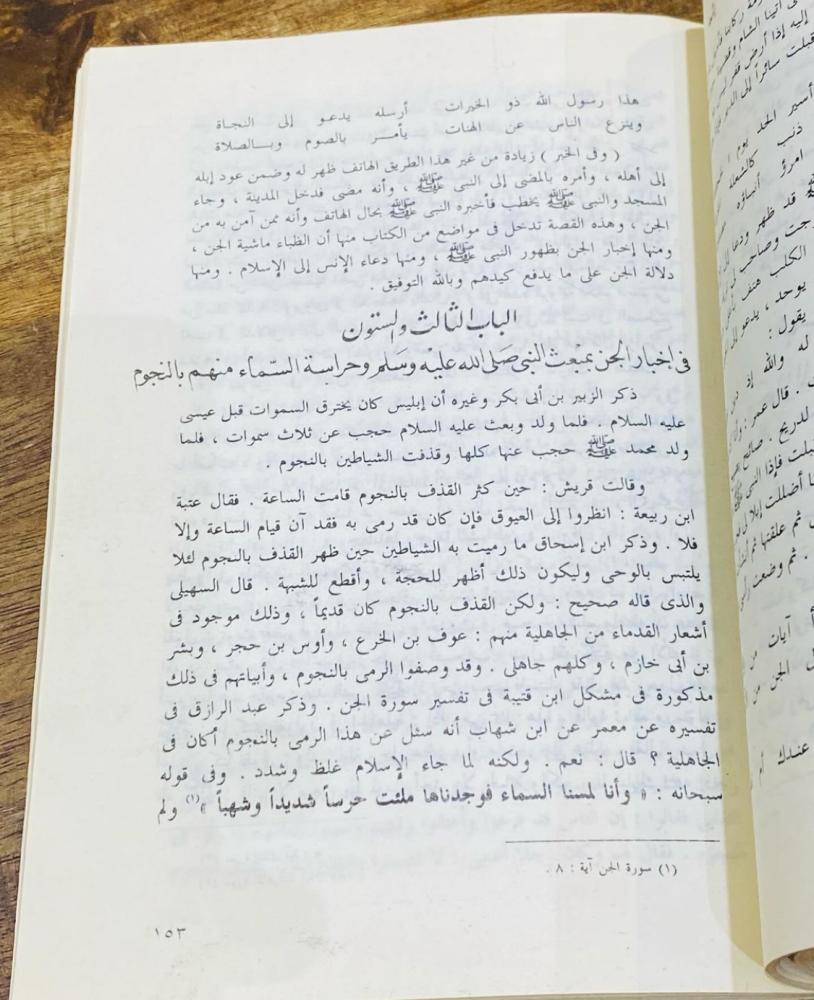 هذا رسول الله ذو الخيرات أرسله يدعو إلى النجاة
وينزع الناس عن الهنات يأمر بالصوم وبالصلاة
( وفى الخبر ) زيادة من غير هذا الطريق الهاتف ظهر له وضمن عود إبله
إلى أهله ، وأمره بالمضى إلى النبى ﷺ ، وأنه مضى فدخل المدينة ، وجاء
المسجد والنبى ﷺ يخطب فأخبره النبى ﷺ بحال الهاتف وأنه ممن آمن به من
الجن ، وهذه القصة تدخل فى مواضع من الكتاب منها أن الظباء ماشية الجن ،
ومنها إخبار الجن بظهور النبى ﷺ ، ومنها دعاء الإنس إلى الإسلام . ومنها
دلالة الجن على ما يدفع كيدهم وبالله التوفيق .
الباب الثالث والستون
فى إخبار الجن بمبعث النبى صلى الله عليه وسلم وحراسة السماء منهم بالنجوم
ذكر الزبير بن أبى بكر وغيره أن إبليس كان يخترق السموات قبل عيسى
عليه السلام . فلما ولد وبعث عليه السلام حجب عن ثلاث سموات ، فلما
ولد محمد ﷺ حجب عنها كلها وقذفت الشياطين بالنجوم .
وقالت قريش : حين كثر القذف بالنجوم قامت الساعة . فقال عتبة
ابن ربيعة : انظروا إلى العيوق فإن كان قد رمى به فقد آن قيام الساعة وإلا
فلا . وذكر ابن إسحاق ما رميت به الشياطين حين ظهر القذف بالنجوم لئلا
يلتبس بالوحى وليكون ذلك أظهر للحجة ، وأقطع للشبهة . قال السهيلى
والذى قاله صحيح : ولكن القذف بالنجوم كان قديماً ، وذلك موجود فى
أشعار القدماء من الجاهلية منهم : عوف بن الخرع ، وأوس بن حجر ، وبشر
بن أبى خازم ، وكلهم جاهلى . وقد وصفوا الرمى بالنجوم ، وأبياتهم فى ذلك
مذكورة فى مشكل ابن قتيبة فى تفسير سورة الجن . وذكر عبد الرازق فى
تفسيره عن معمر عن ابن شهاب أنه سئل عن هذا الرمى بالنجوم أكان فى
الجاهلية ؟ قال : نعم . ولكنه لما جاء الإسلام غلظ وشدد . وفى قوله
سبحانه : « وأنا لمسنا السماء فوجدناها ملئت حرساً شديداً وشهباً »(١) ولم
(١) سورة الجن آية : ٨ .
١٥٣